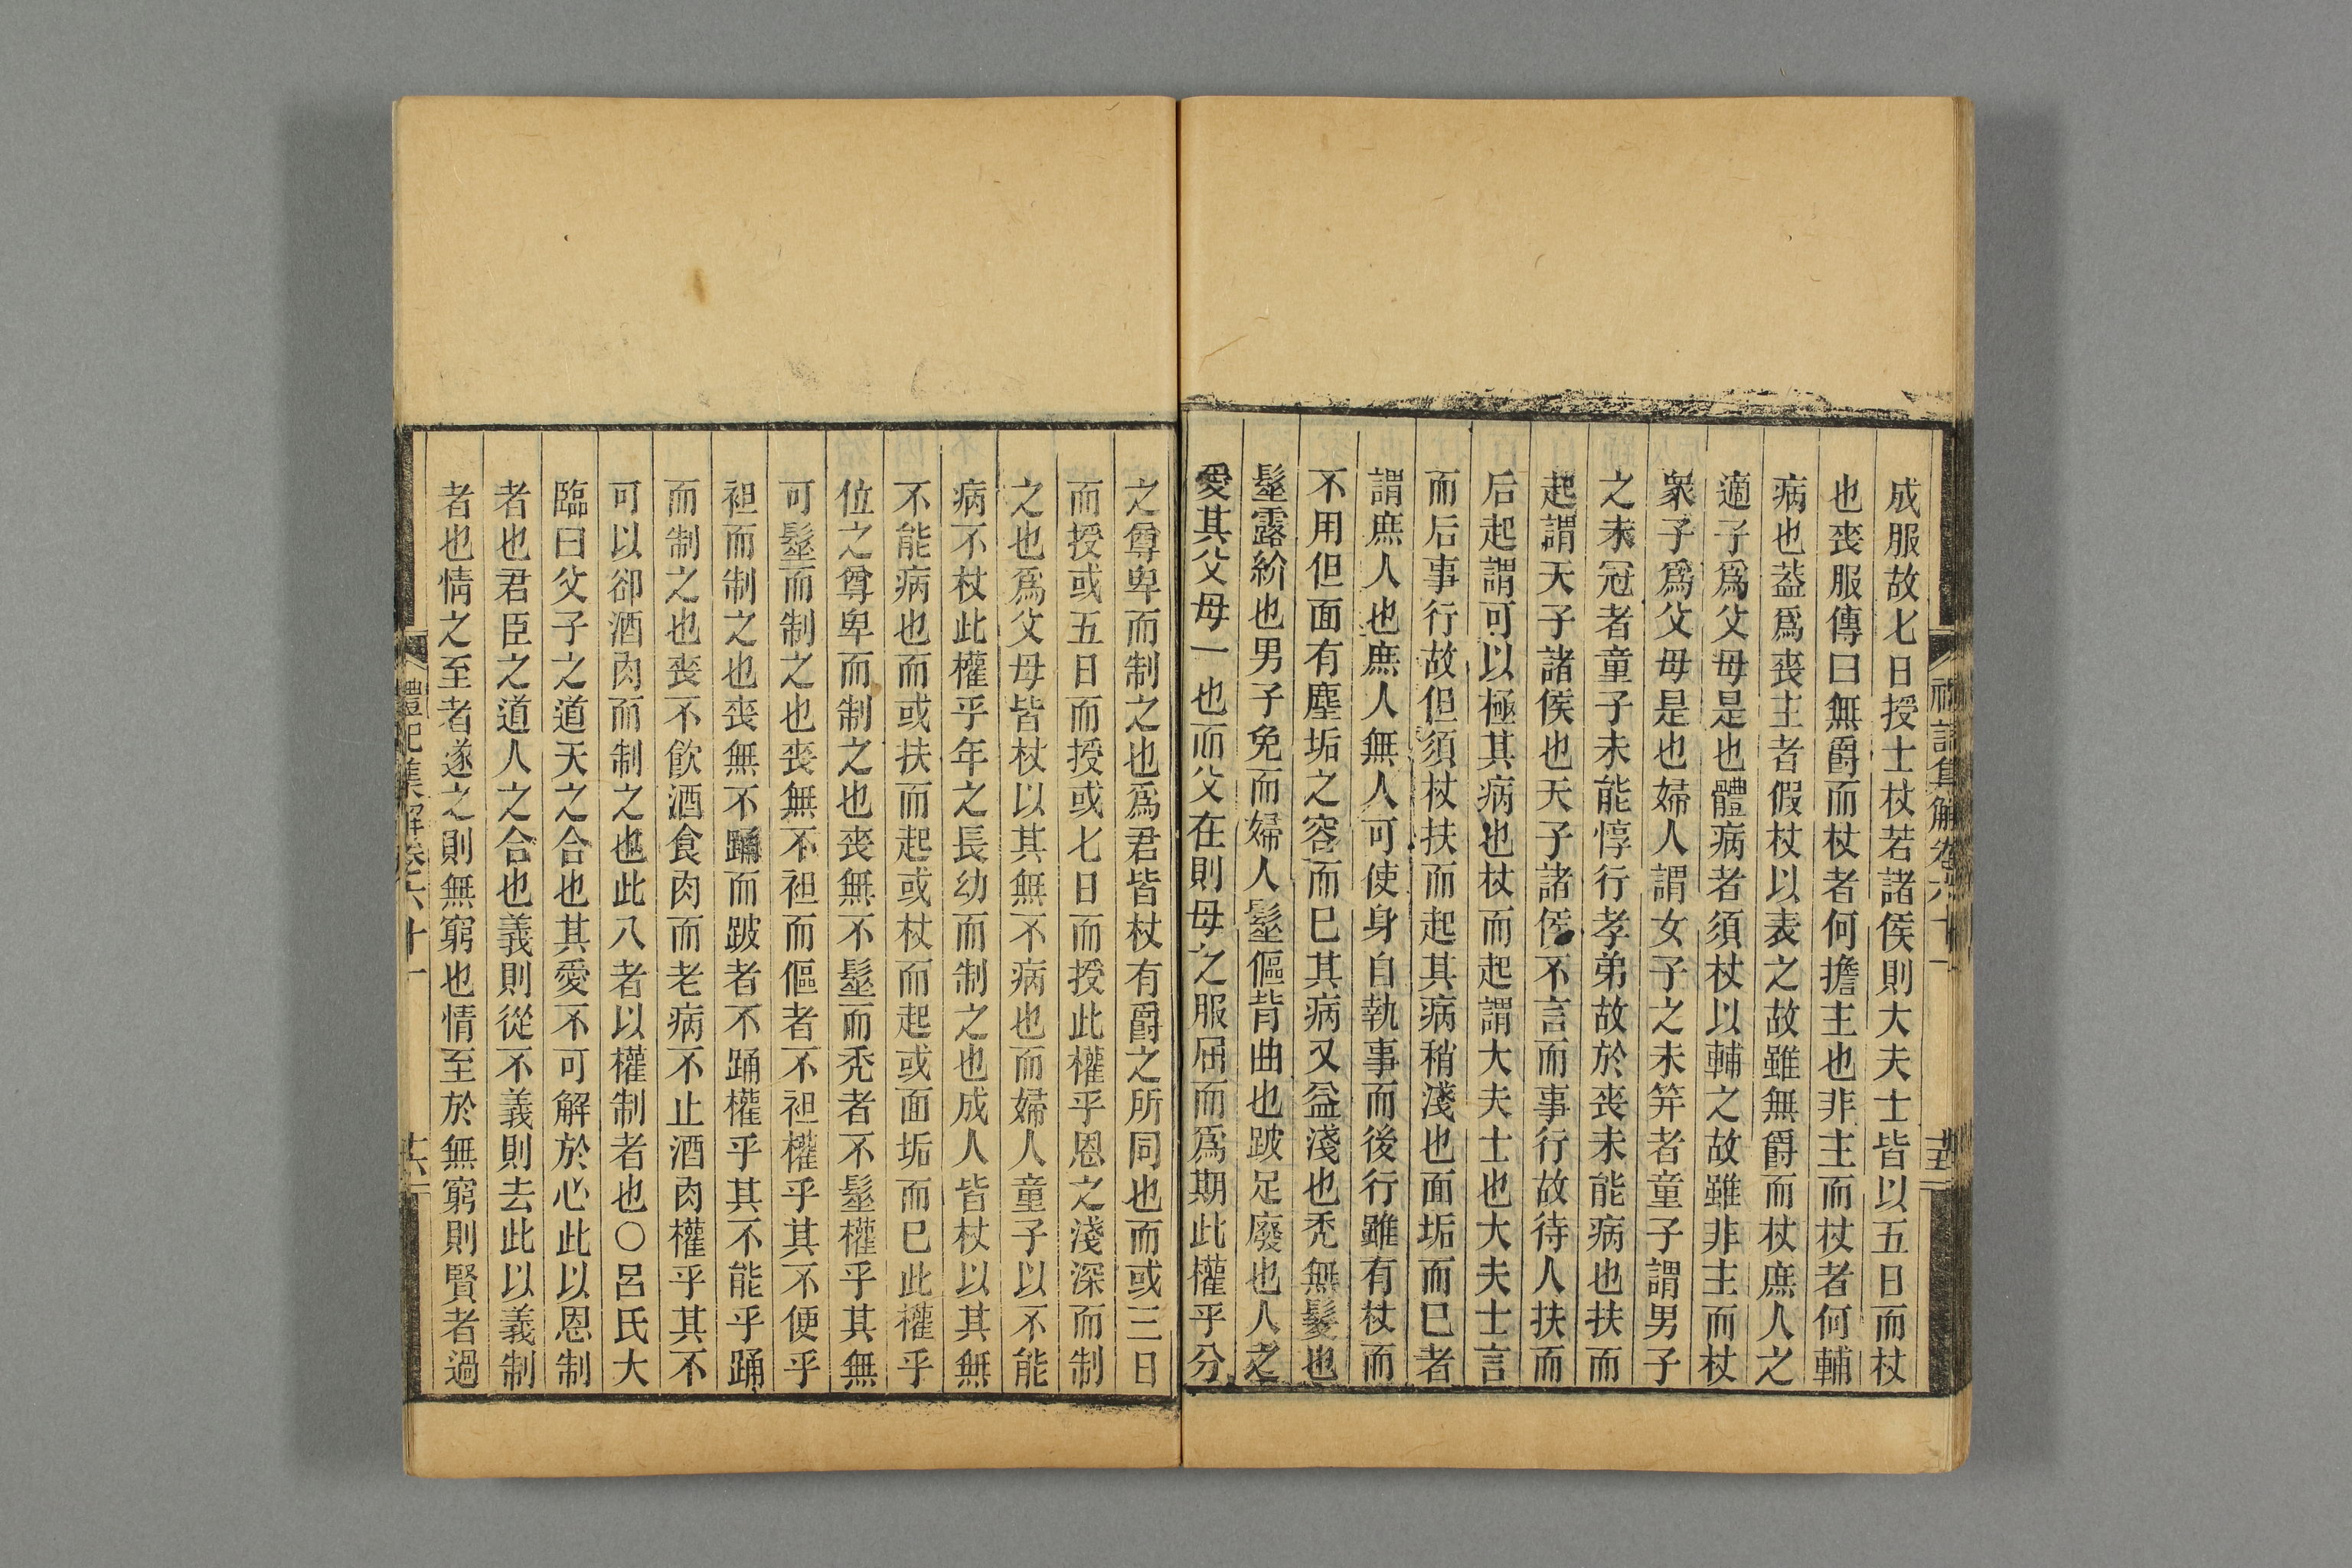 成服故七日授士杖若諸侯則大夫士皆以五日而杖
也喪服傳曰無爵而杖者何擔主也非主而杖者何輔
病也葢爲喪主者假杖以表之故雖無爵而杖庶人之
適子爲父母是也體病者須杖以輔之故雖非主而杖
衆子爲父母是也婦人謂女子之未筓者童子謂男子
之未冠者童子未能惇行孝弟故於喪未能病也扶而
起謂天子諸侯也天子諸侯不言而事行故待人扶而
后起謂可以極其病也杖而起謂大夫士也大夫士言
而后事行故但須杖扶而起其病稍淺也面垢而巳者
謂庶人也庶人無人可使身自執事而後行雖有杖而
不用但面有塵垢之容而巳其病又益淺也禿無髮也
髽露紒也男子免而婦人髽傴背曲也跛足廢也人之
愛其父母一也而父在則母之服屈而爲期此權乎分
之尊卑而制之也爲君皆杖有爵之所同也而或三日
而授或五日而授或七日而授此權乎恩之淺深而制
之也爲父母皆杖以其無不病也而婦人童子以不能
病不杖此權乎年之長幼而制之也成人皆杖以其無
不能病也而或扶而起或杖而起或面垢而巳此權乎
位之尊卑而制之也喪無不髽而禿者不髽權乎其無
可髽而制之也喪無不袒而傴者不袒權乎其不便乎
袒而制之也喪無不踊而跛者不踊權乎其不能乎踊
而制之也喪不飮酒食肉而老病不止酒肉權乎其不
可以卻酒肉而制之也此八者以權制者也○呂氏大
臨曰父子之道天之合也其愛不可解於心此以恩制
者也君臣之道人之合也義則從不義則去此以義制
者也情之至者遂之則無窮也情至於無窮則賢者過
禮記集解卷六十一